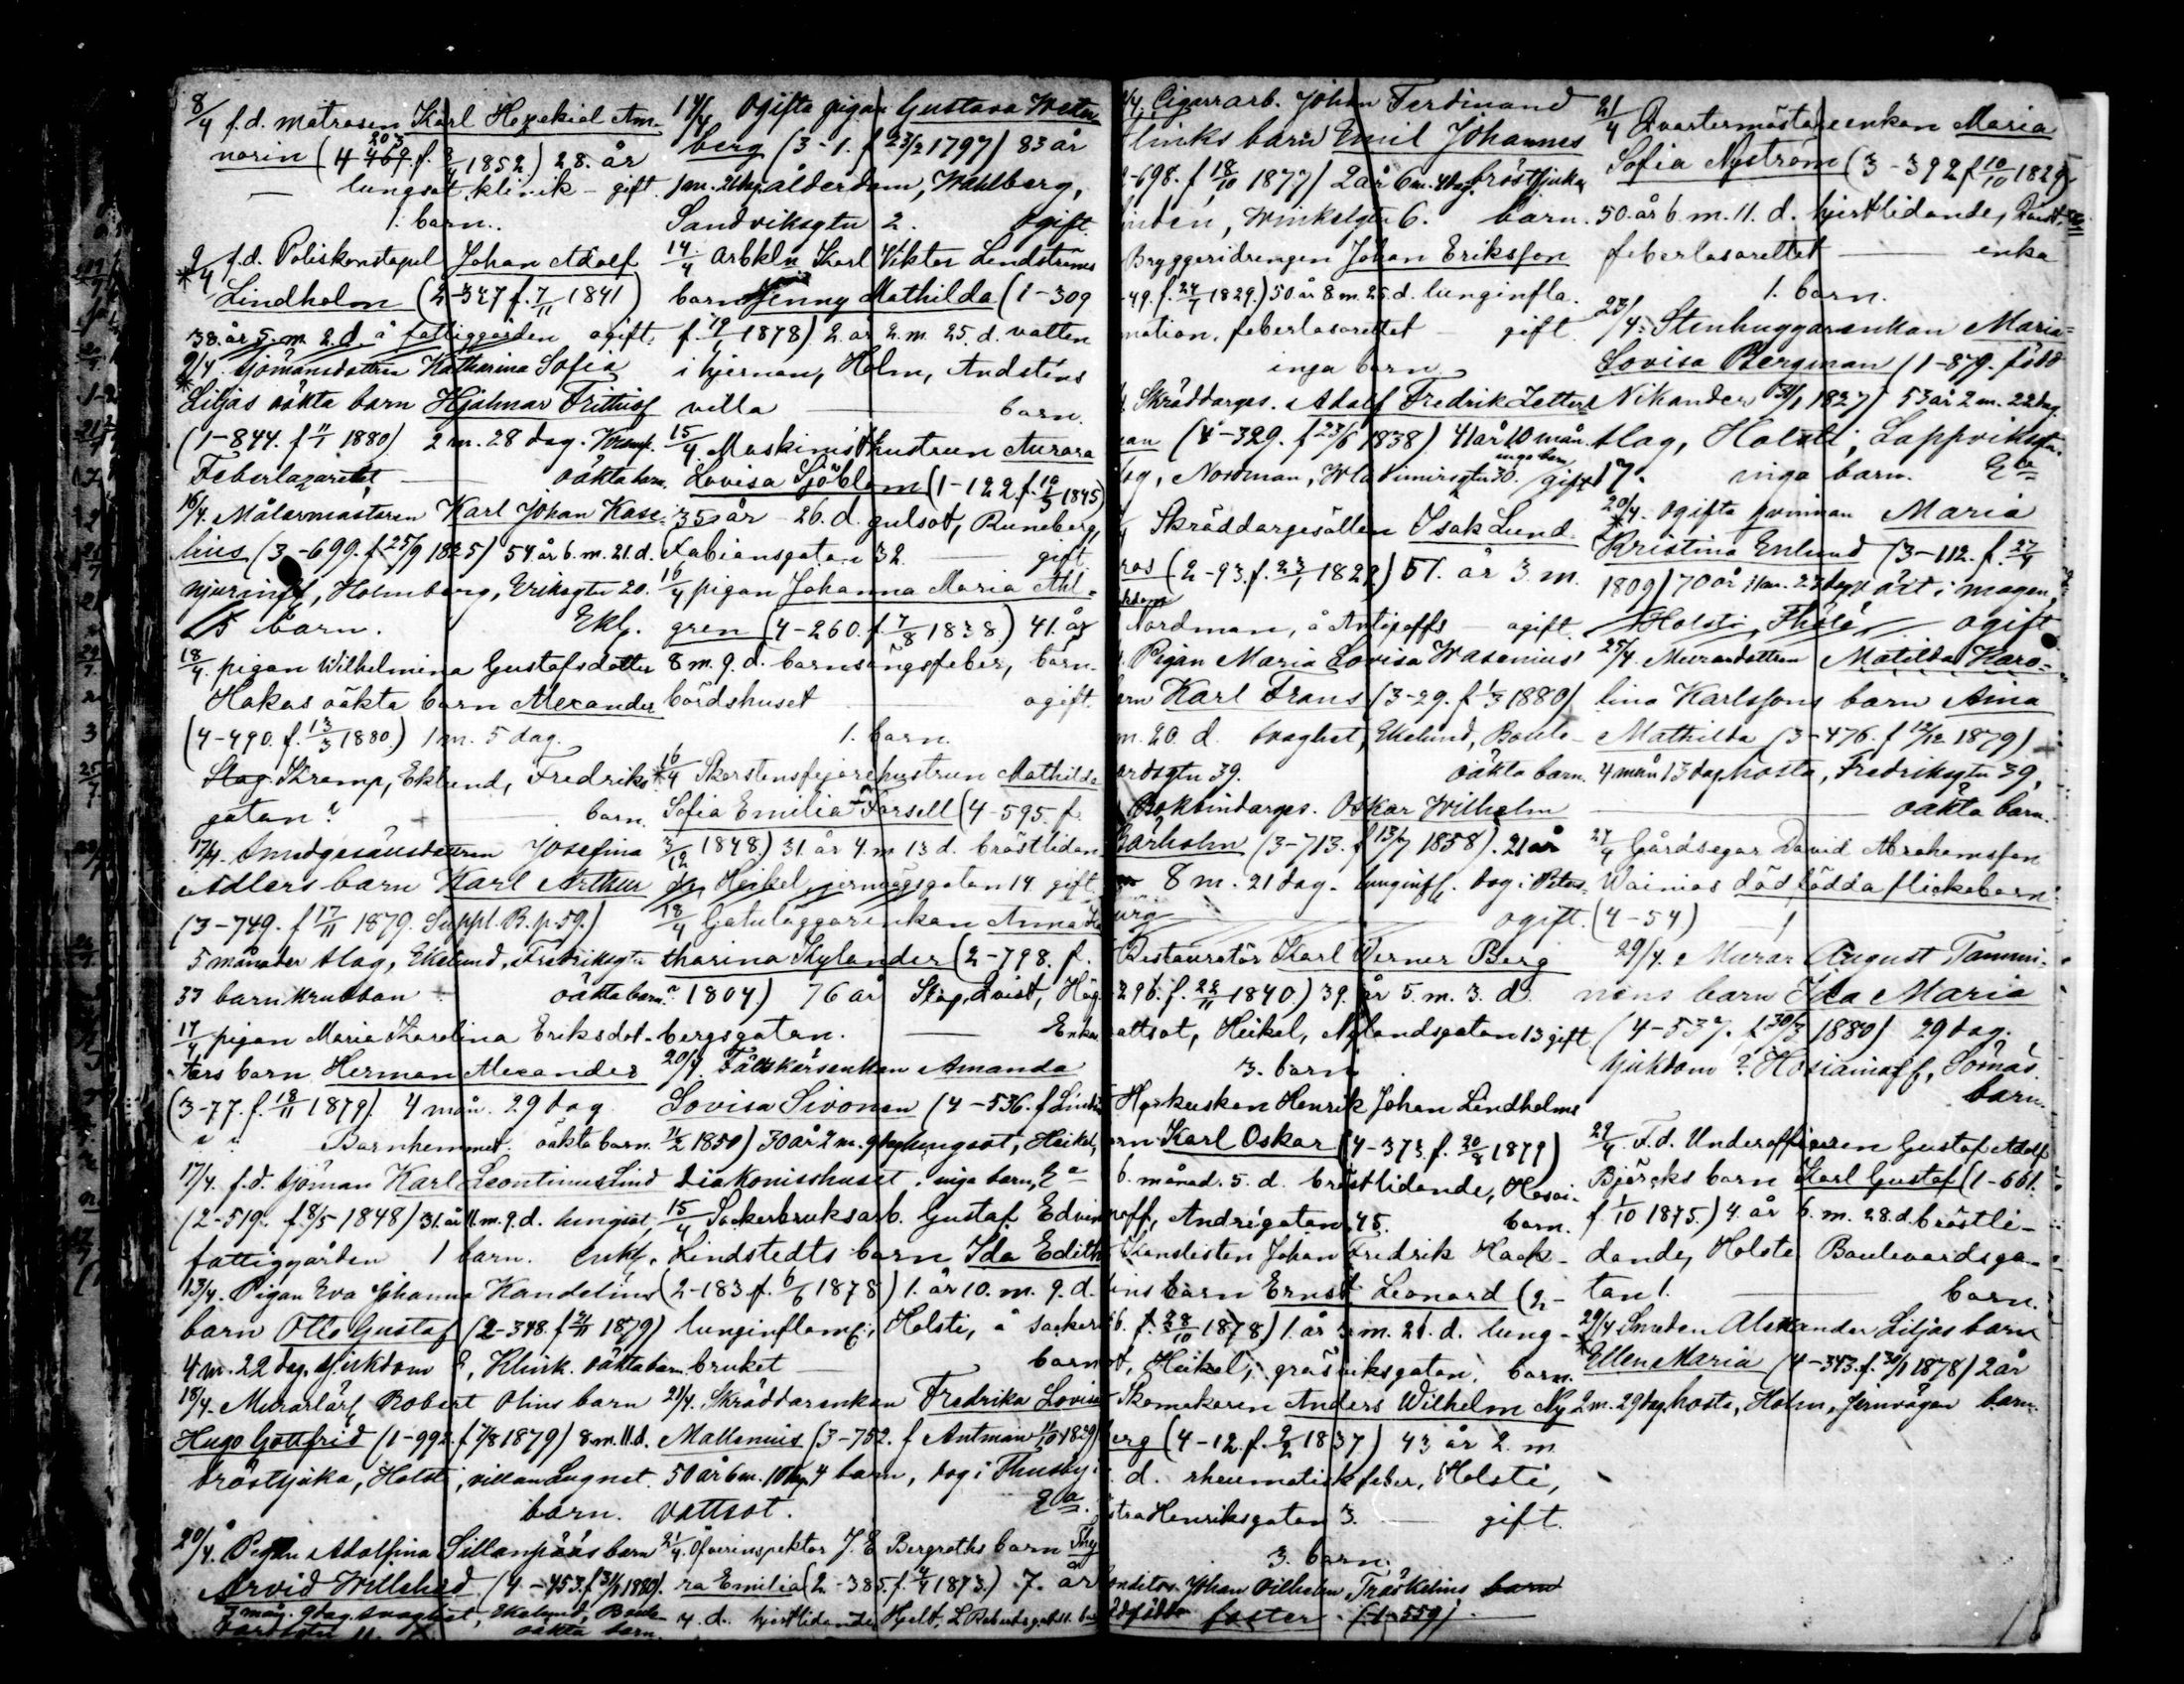 8/4 f.d. matrosen Karl Hezekiel Am-
norin (4-469. 203 f. 1852.) 28. år
— lungsot, klinik - gift
1. barn.
9/4 f.d. Poliskonstapel Johan Adolf
Lindholm (2-347 f. 7/11 1841)
38. år 5. m. 2. d. å fattiggården ogift.
9/4. Sjömansdottren Katharina Sofia
Liljas oäkta barn Hjalmar Frithiof
(1-844. f 11/1 1880) 2 m. 28 dag. Kramp.
Feberlazarettet — oäkta barn.
16/4. Målarmästaren Karl Johan Kase-
lius (3-699. f. 25/9 1825) 54 år 6. m. 21. d.
njurinfl, Holmberg, Eriksgtn 20.
5 barn. Ekl.
18/4. pigan Wilhelmina Gustafsdotter
Hakas oäkta barn Alexander
(4-490. f. 13/3 1880.) 1 m. 5 dag.
Slag. Kramp, Eklund, Fredriks
gatan? — barn.
17/4. Smedgesällsdottren Josefina
Adlers barn Karl Arthur
(3-749. f 17/11 1879. Suppl. B. p. 59.)
5 månader slag, Ekelund, Fredriksgtn
37 barnkrubban oäkta barn.
17/4 pigan Maria Karolina Eriksdot-
ters barn Herman Alexander
(3-77. f. 18/11 1879). 4 mån. 29 dag
Barnhemmet. oäkta barn.
17/4. f.d. sjöman Karl Leontinus Lind
(2-519. f. 8/5 1848) 31. år 11. m. 9. d. lungsot,
fattiggården 1 barn. enkl.
13/4. Pigan Eva Johanna Kandelins
barn Otto Gustaf (2-348. f 21/11 1879)
4 m. 22 dag. Sjukdom ?, Klinik. oäkta barn.
18/4. Murarlärl. Robert Olins barn
Hugo Gottfrid (1-992. f 7/8 1879) 8. m. 11. d.
bröstsjuka, Holsti, villan Lugnet.
barn.
20/4. Pigan Adolfina Sillanpääs barn
Arvid Willehad (4-453. f 31/1 1880).
mån. 9 dag. svaghet, Ekelund, Boule
oäkta barn.
14/4 Ogifta pigan Gustava Weten
berg (3-1. f 23/2 1797) 83 år
1 m. 21 dag. ålderdom, Wahlberg,
Sandviksgtn 2. ogift.
14/4 arbkln Karl Viktor Lindströms
barn Jenny Mathilda (1-309
f. 19/1 1878). 2. år 2. m. 25. d. vatten
i hjernan, Holm, Andsténs
villa — barn.
15/4. Maskinisthustrun Aurora
Lovisa Sjöblom (1-122. f. 19/3 1845)
35 år - 26. d. gulsot, Runeberg,
Fabiansgatan 32 — gift.
16/4 pigan Johanna Maria Ahl-
gren (4-260. f. 7/8 1838.) 41. år
8 m. 9. d. barnsängsfeber, barn-
bördshuset — ogift.
1. barn.
16/4 Skorstensfejarehustrun Mathilda
Sofia Emilia Forsell (4-595. f.
3/12 1848.) 31. år 4. m 13 d. bröstlidan
de, Heikel, jernvägsgatan 14. gift.
18/4 Gatuläggarenkan Anna Ka
tharina Kylander (2-798. f.
1804.) 76 år Slag, Qvist, Hög
bergsgatan. — Enka
20/4. Fältskärsenkan Amanda
Lovisa Sivonen (4-536. f Lind
11/2 1850) 30 år 2 m. 9 dag lungsot, Heikel,
Diakonisshuset. inga barn. E a
15/4 Sockerbruksarb. Gustaf Edvin
Lindstedts barn Ida Edith
(2-183 f. 6/6 1878) 1. år 10. m. 9. d.
lunginflam., Holsti, å socker
bruket — barn
21/4. Skräddarenkan Fredrika Lovisa
Mallenius (3-752. f Antman 11/10 1829)
50 år 6 m. 10 dag. 4 barn, dog i Thusby
vattsot. E a.
21/4. Öfverinspektor J. E Bergroths barn Thy
ra Emilia (2-385. f. 4/4 1873.) 7. år
4. d. hjertlidande Hjelt, L Robertsgat 11. bar
Cigarrarb. Johan Ferdinand
Flinks barn Emil Johannes
-698. f 18/10 1877) 2 år 6 m. dag. bröstsjuka
Linden, Winkelgtn 6. barn.
Bryggeridrengen Johan Eriksson
-49. f. 24/7 1829.) 50. år 8 m. 25. d. lunginfla.
mation, feberlasarettet — gift
inga barn.
Skräddarges. Adolf Fredrik Zetter
man (4-329. f 23/5 1838) 41 år 10 mån.
Nordman, Wladimirsgtn 30. inga barn gift
Skräddargesällen Isak Lund
ros (2-93. f. 23/1 1829) 51. år 3. m.
Nordman, å Antipoffs — ogift.
Pigan Maria Lovisa Wasenius'
barn Karl Frans (3-29. f 1/3 1880)
m. 20. d. svaghet, Ekelund, Boule-
ardsgtn 39. oäkta barn.
Bokbindarges. Oskar Wilhelm
Garholm (3-713. f 13/7 1858). 21 år
8 m. 21 dag. lunginfl. dog i Peters-
burg — ogift.
Restauratör Karl Verner Berg
296. f. 22/11 1840.) 39. år 5. m. 3. d.
vattsot, Heikel, Nylandsgatan 13 gift
3. barn.
Hyrkusken Henrik Johan Lindholms
barn Karl Oskar (4-373. f. 20/8 1879)
6. månad. 5. d. bröstlidande, Hosai-
noff, Andrégatan 45. barn.
Kanslisten Johan Fredrik Hack-
lins barn Ernst Leonard (2-
6. f. 28/10 1878) 1. år m. 21. d. lung-
ot, Heikel, gräsviksgatan. barn.
Skomakaren Anders Wilhelm Ny
berg (4-12. f. 2/2 1837) 43 år 2. m
d. rheumatisk feber, Holsti,
stra Henriksgatan 3. — gift.
3. barn.
onditor. Johan Vilhelm Träskelins barn
dödfödda foster (1-559).
21/4 Qvartermästareenkan Maria
Sofia Nyström (3-392 f 10/10 1829)
50. år 6. m. 11. d. hjertlidande,
feberlasarettet — enka
1. barn.
23/4. Stenhuggarenkan Maria
Lovisa Bergman (1-879. född
Nikander 31/1 1827) 53 år 2 m. 22 dag.
slag, Holsti, Lappviksgtn.
17. inga barn. E a
20/4. Ogifta qvinnan Maria
Kristina Enlund (3-112. f. 27/4
1809) 70 år 11 m. 23 dag. växt i magen,
Holsti, Thölö ogift
25/4. Murardottren Matilda Karo-
lina Karlssons barn Aina
Mathilda (3-476. f 12/12 1879)
4 mån 13 dag. hosta, Fredriksgtn 39,
— oäkta barn.
27/4 Gårdsegar David Abrahamsson
Wainios dödfödda flickebarn
(4-54)
29/4. Murar August Tammi-
nens barn Ida Maria
(4-537. f. 30/3 1880) 29 dag.
sjukdom ? Hosiainoff, Sörnäs.
barn.
29/4 F.d. Underofficeren Gustaf Adolf
Björcks barn Karl Gustaf (1-661.
f. 1/10 1875.) 4. år 6. m. 28. d. bröstli-
dande, Holsti Boulevardsga-
tan 1. — barn.
29/4 Smeden Alexander Liljas barn
Ellen Maria (4-343. f. 30/1 1878) 2 år
2 m. 29 dag. hosta, Holm, Jernvägen barn.